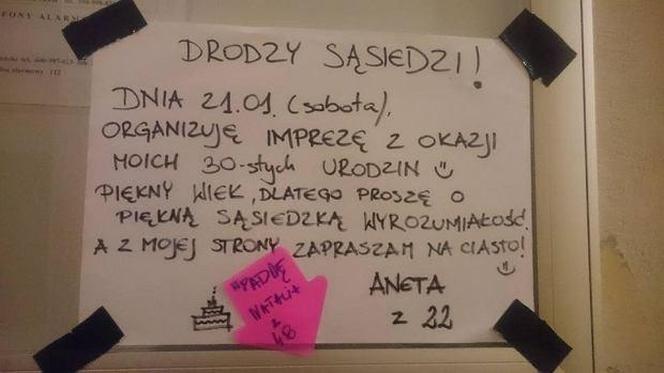 FONY ALARM
DRODZY SĄSIEDZI!
DNIA 21.01. (sobota),
ORGANIZUJĘ IMPREZĘ Z OKAZJI
MOICH 30-stych URODZIN
PIĘKNY WIEK, DLATEGO PROSZĘ O
PIĘKNĄ SĄSIEDZKĄ WYROZUMIAŁOŚĆ.
A Z MOJEJ STRONY ZAPRASZAM NA CIASTO!
ANETA
z 22
WPADDĘ
NATALIA
z 48